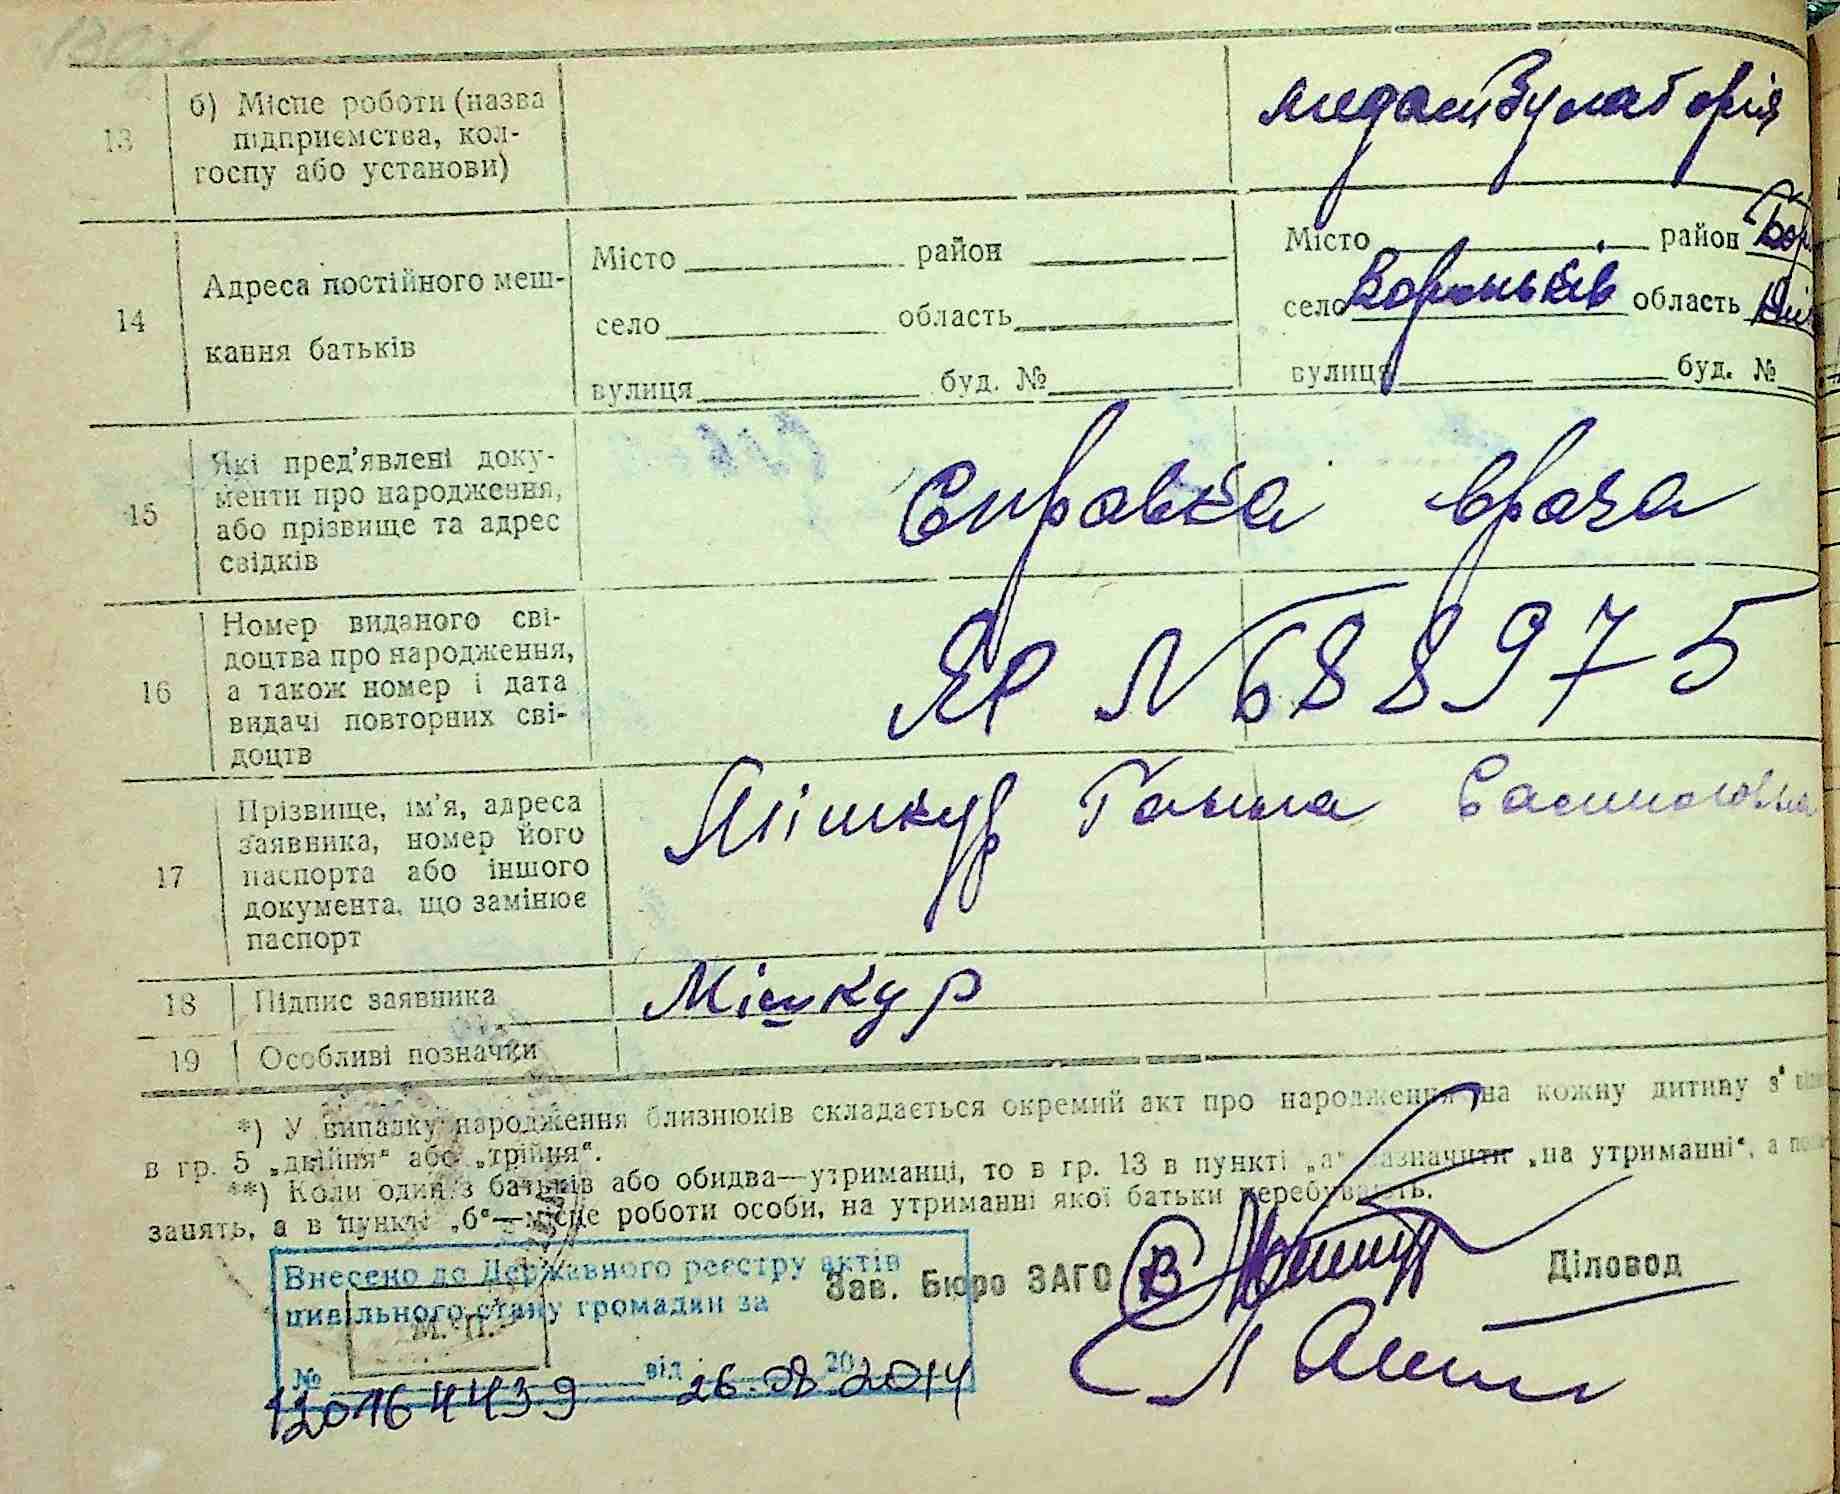 13
б) Місце роботи (назва
підприємства, кол-
госпу або установи)
14
Адреса постійного меш-
кання батьків
Місто район
село область
вулиця буд. №
Місто район Бор.
село Вороньків область
вулиця буд. №
15
Які пред'явлені доку-
менти про народження,
або прізвище та адрес
свідків
Справка врача
16
Номер виданого сві-
доцтва про народження,
а також номер і дата
видачі повторних сві-
доцтв
ЯР № 688975
17
Прізвище, ім'я, адреса
заявника, номер його
паспорта або іншого
документа, що замінює
паспорт
Мішкур Ганна
18
Підпис заявника
Мішкур
19
Особливі позначки
*) У випадку народження близнюків складається окремий акт про народження на кожну дитину з
в гр. 5 „двійня“ або „трійня“.
**) Коли один з батьків або обидва—утриманці, то в гр. 13 в пункті „а“ зазначити „на утриманні“, а
занять, а в пункті „б“—місце роботи особи, на утриманні якої батьки перебувають.
Внесено до Державного реєстру актів
цивільного стану громадян за
М. П.
№ від 20
12016 4439 26.08.2014
Зав. Бюро ЗАГС
Діловод